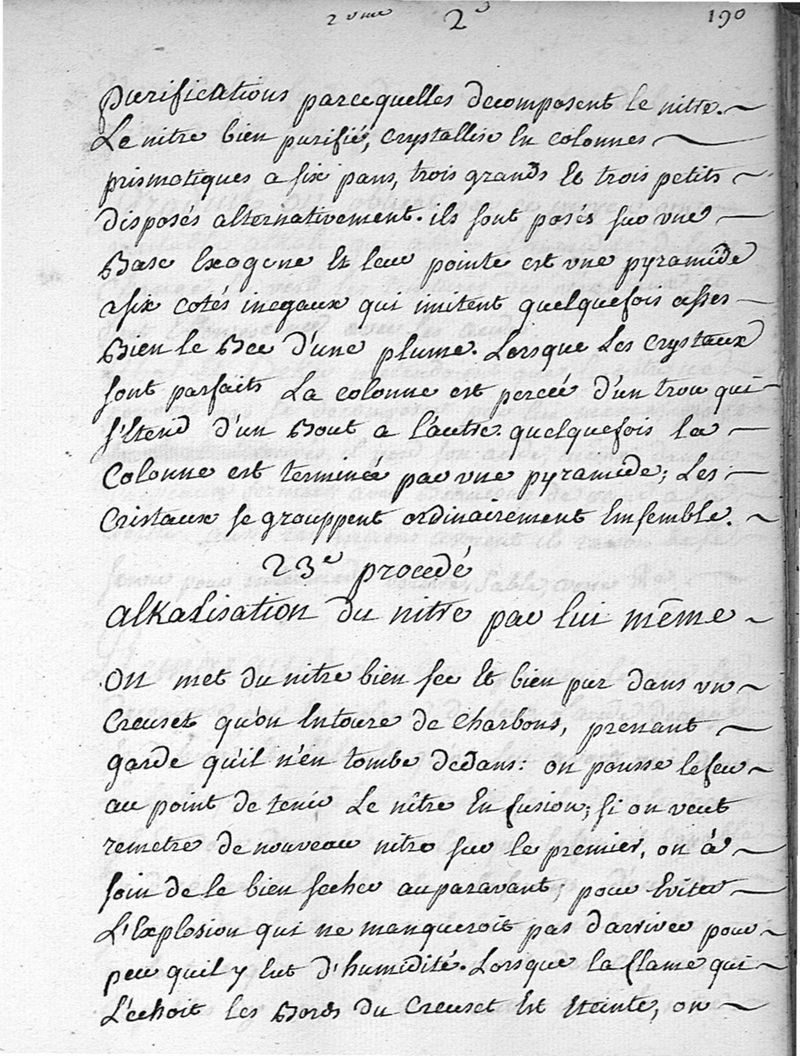 2eme 2e 190
purifications parcequelles decomposent le nitre. ~
Le nitre bien purifié, crystallise En colonnes —
prismatiques a six pans, trois grands Et trois petits ~
disposés alternativement. ils sont posés sur une —
Base Exagone Et leur pointe est une pyramide
a six cotés inegaux qui imitent quelquefois asses —
Bien le Bec d'une plume. Lorsque Les crystaux
sont parfaits La colonne est percée d'un trou qui —
s'Etend d'un Bout a l'autre. quelquefois la —
Colonne est terminée par une pyramide; Les —
Cristaux se grouppent ordinairement Ensemble. ~
23e procedé
alkalisation du nitre par lui même ~
On met du nitre bien sec Et bien pur dans un ~
Creuset qu'on Entoure de charbons, prenant ~
garde qu'il n'en tombe dedans: on pousse le feu ~
au point de tenir Le nître En fusion; si on veut
remetre de nouveau nitre sur le premier, on à ~
soin de le bien secher auparavant, pour Eviter —
L'Explosion qui ne manqueroit pas d'arriver pour ~
peu quil y Eut d'humidité. Lorsque la flame qui ~
Léchoit les Bords du Creuset Est Eteinte, on ~